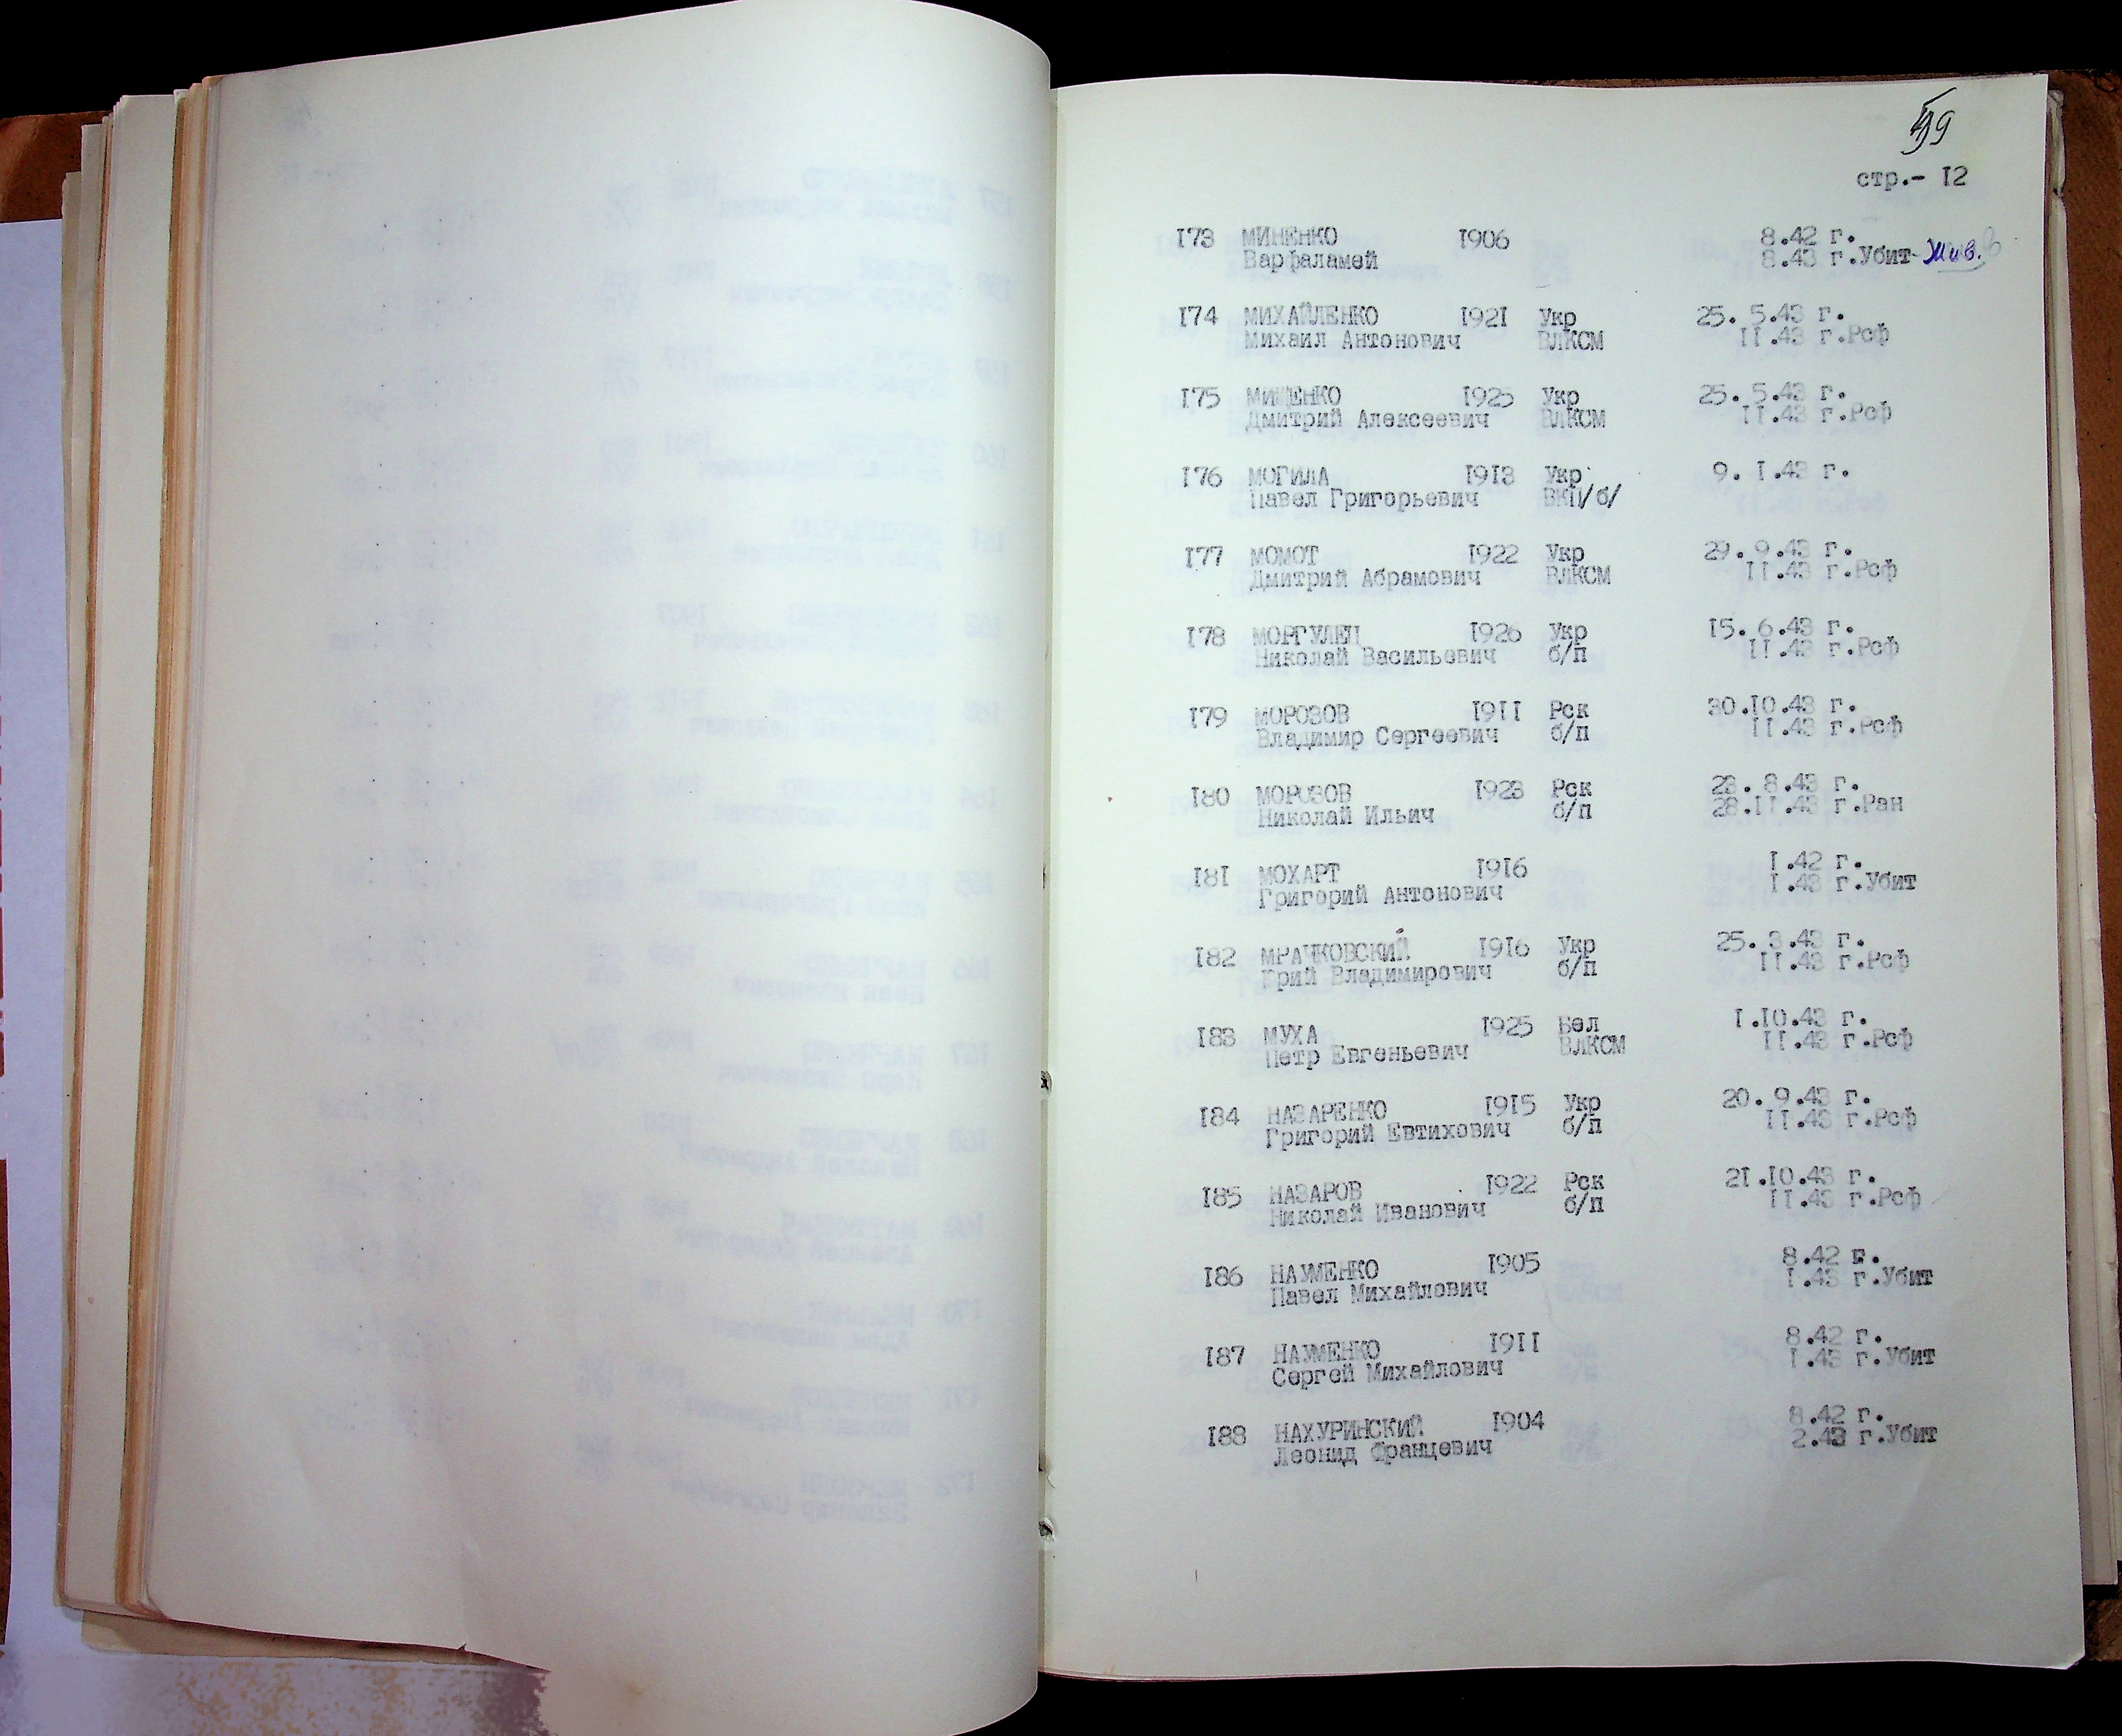 99
стр.- I2
I73 МИНЕНКО I906 8.42 г.
Варфаламей 8.43 г.Убит- Жив.
I74 МИХАЙЛЕНКО I92I Укр 25. 5.43 г.
Михаил Антонович ВЛКСМ II.43 г.Рсф
I75 МИЩЕНКО I925 Укр 25. 5.43 г.
Дмитрий Алексеевич ВЛКСМ II.43 г.Рсф
I76 МОГИЛА I913 Укр 9. I.43 г.
Павел Григорьевич ВКП/б/
I77 МОМОТ I922 Укр 29. 9.43 г.
Дмитрий Абрамович ВЛКСМ II.43 г.Рсф
I78 МОРГУЛЕЦ I926 Укр I5. 6.43 г.
Николай Васильевич б/п II.43 г.Рсф
I79 МОРОЗОВ I9II Рск 30.I0.43 г.
Владимир Сергеевич б/п II.43 г.Рсф
I80 МОРОЗОВ I923 Рск 23. 8.43 г.
Николай Ильич б/п 28.II.43 г.Ран
I8I МОХАРТ I9I6 I.42 г.
Григорий Антонович I.43 г.Убит
I82 МРАЧКОВСКИЙ I9I6 Укр 25. 3.43 г.
Юрий Владимирович б/п II.43 г.Рсф
I83 МУХА I925 Бел I.I0.43 г.
Петр Евгеньевич ВЛКСМ II.43 г.Рсф
I84 НАЗАРЕНКО I9I5 Укр 20. 9.43 г.
Григорий Евтихович б/п II.43 г.Рсф
I85 НАЗАРОВ I922 Рск 2I.I0.43 г.
Николай Иванович б/п II.43 г.Рсф
I86 НАУМЕНКО I905 8.42 г.
Павел Михайлович I.43 г.Убит
I87 НАУМЕНКО I9II 8.42 г.
Сергей Михайлович I.43 г.Убит
I88 НАХУРИНСКИЙ I904 8.42 г.
Леонид Францевич 2.43 г.Убит